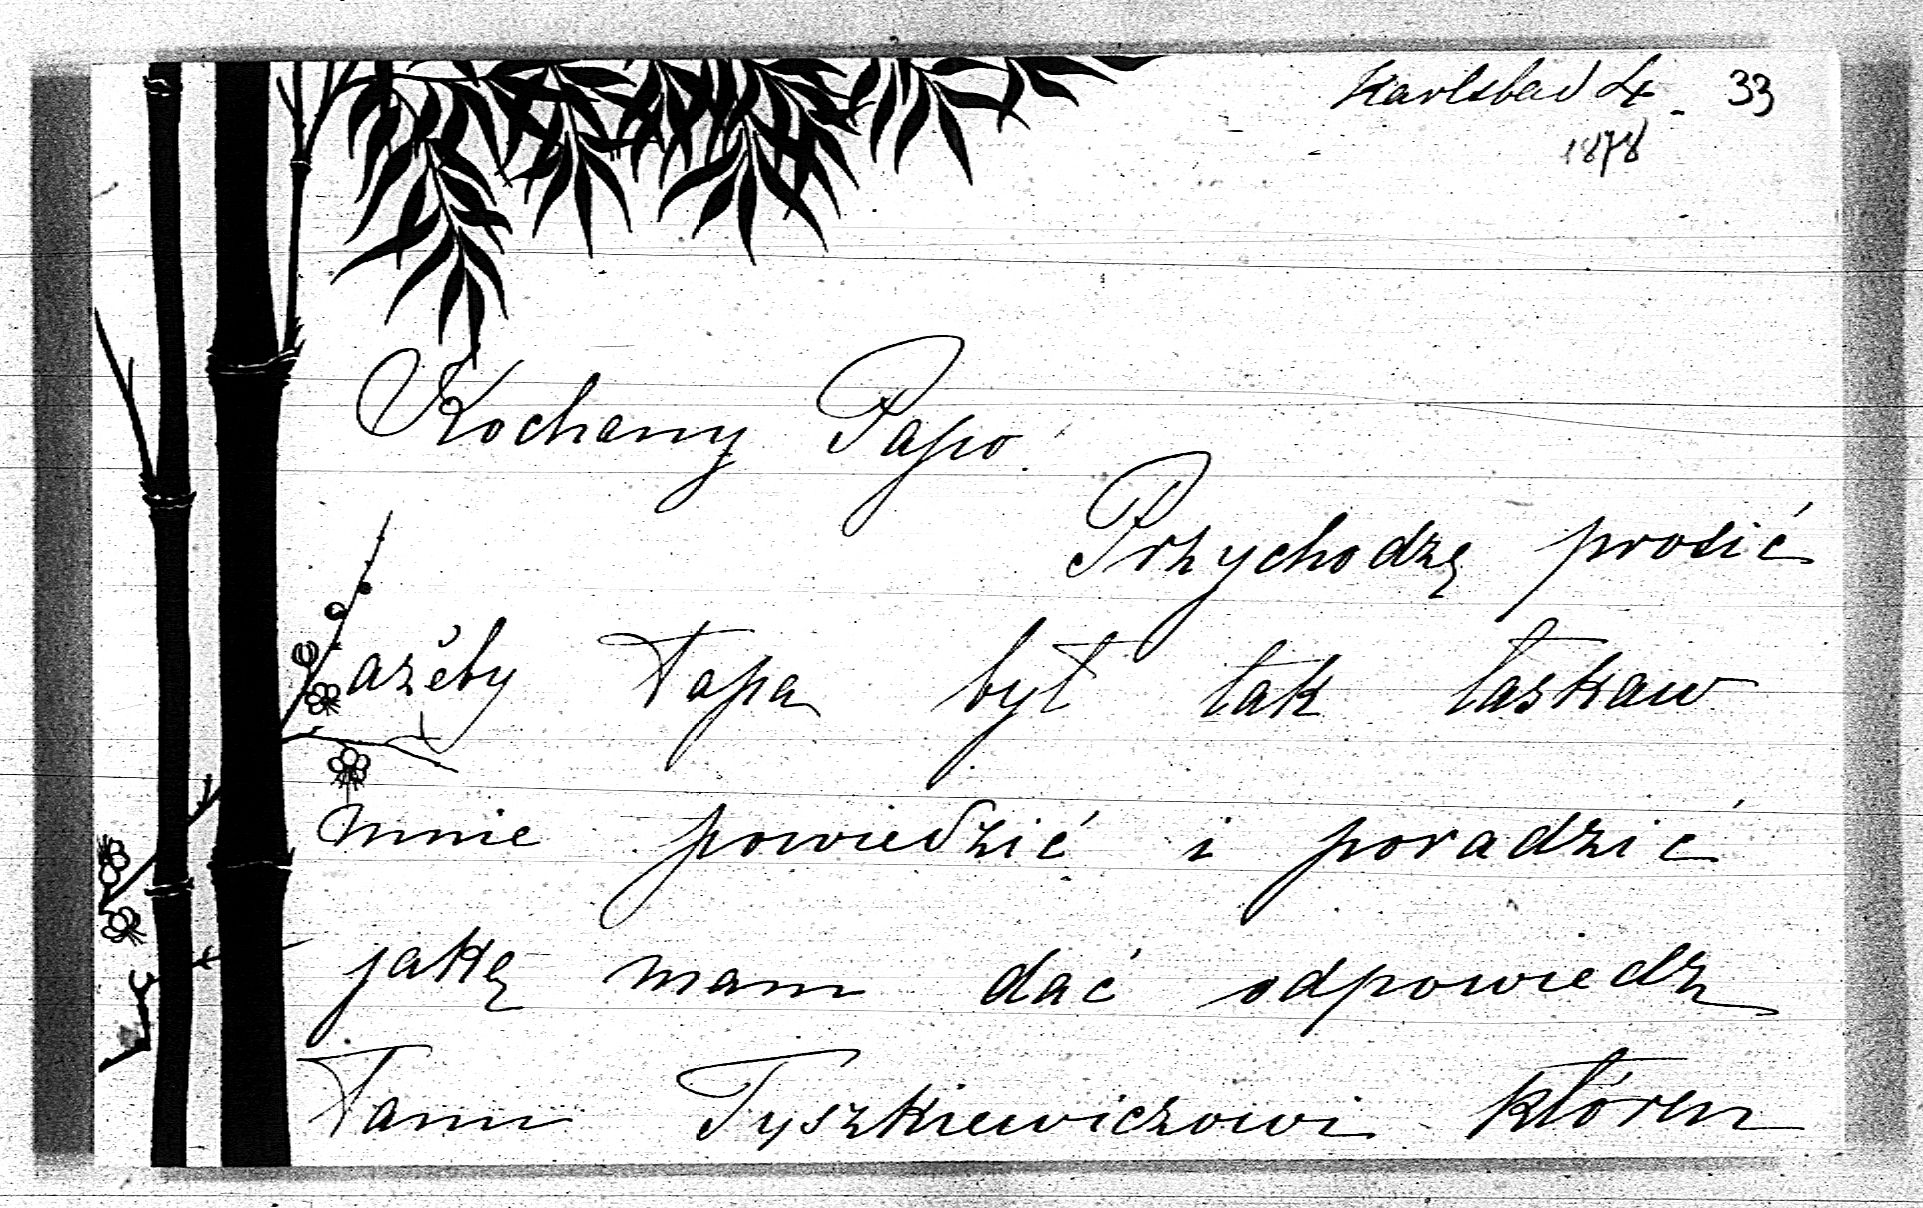 Karlsbad 4. 33
1878
Kochany Papo!
Przychodzę prosić
ażeby Papa był tak łaskaw
mnie powiedzić i poradzić
jakę mam dać odpowiedz
Panu Tyszkiewiczowi któren